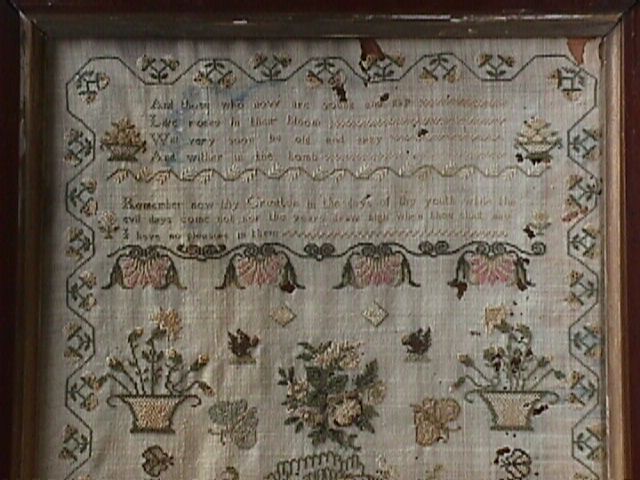 And those who now are young and gay
Like roses in their bloom
Will very soon be old and grey
And wither in the tomb
Remember now thy Creator in the days of thy youth while the
evil days come not nor the years draw nigh when thou shalt say
I have no pleasure in them